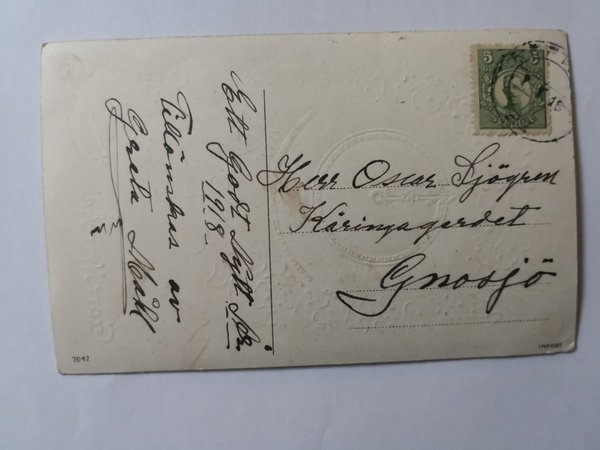 Ett Godt Nytt År
1918
Tillönskas av
Greta Mähl
5 5
SVERIGE
Herr Oscar Sjögren
Käringagerdet
Gnosjö
7047
IMPORT